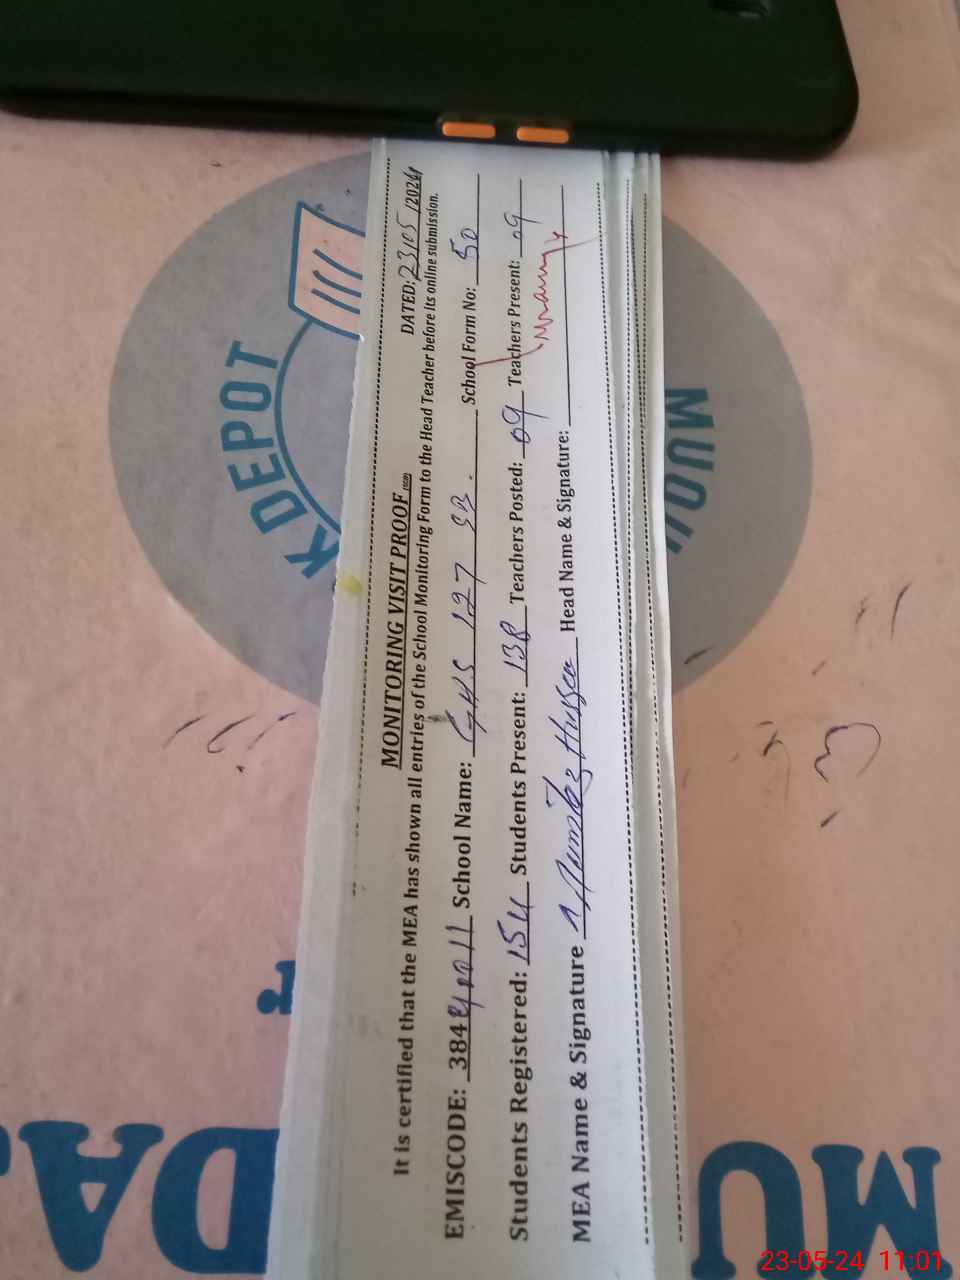 MONITORING VISIT PROOF
DATED: 23/05/2024
It is certified that the MEA has shown all entries of the School Monitoring Form to the Head Teacher before its online submission.
EMISCODE: 38440011 School Name: GHS 127 SB. School Form No: 50
Students Registered: 154 Students Present: 138 Teachers Posted: 09 Teachers Present: 09
MEA Name & Signature Head Name & Signature:
K DEPOT
MU
23-05-24 11:01